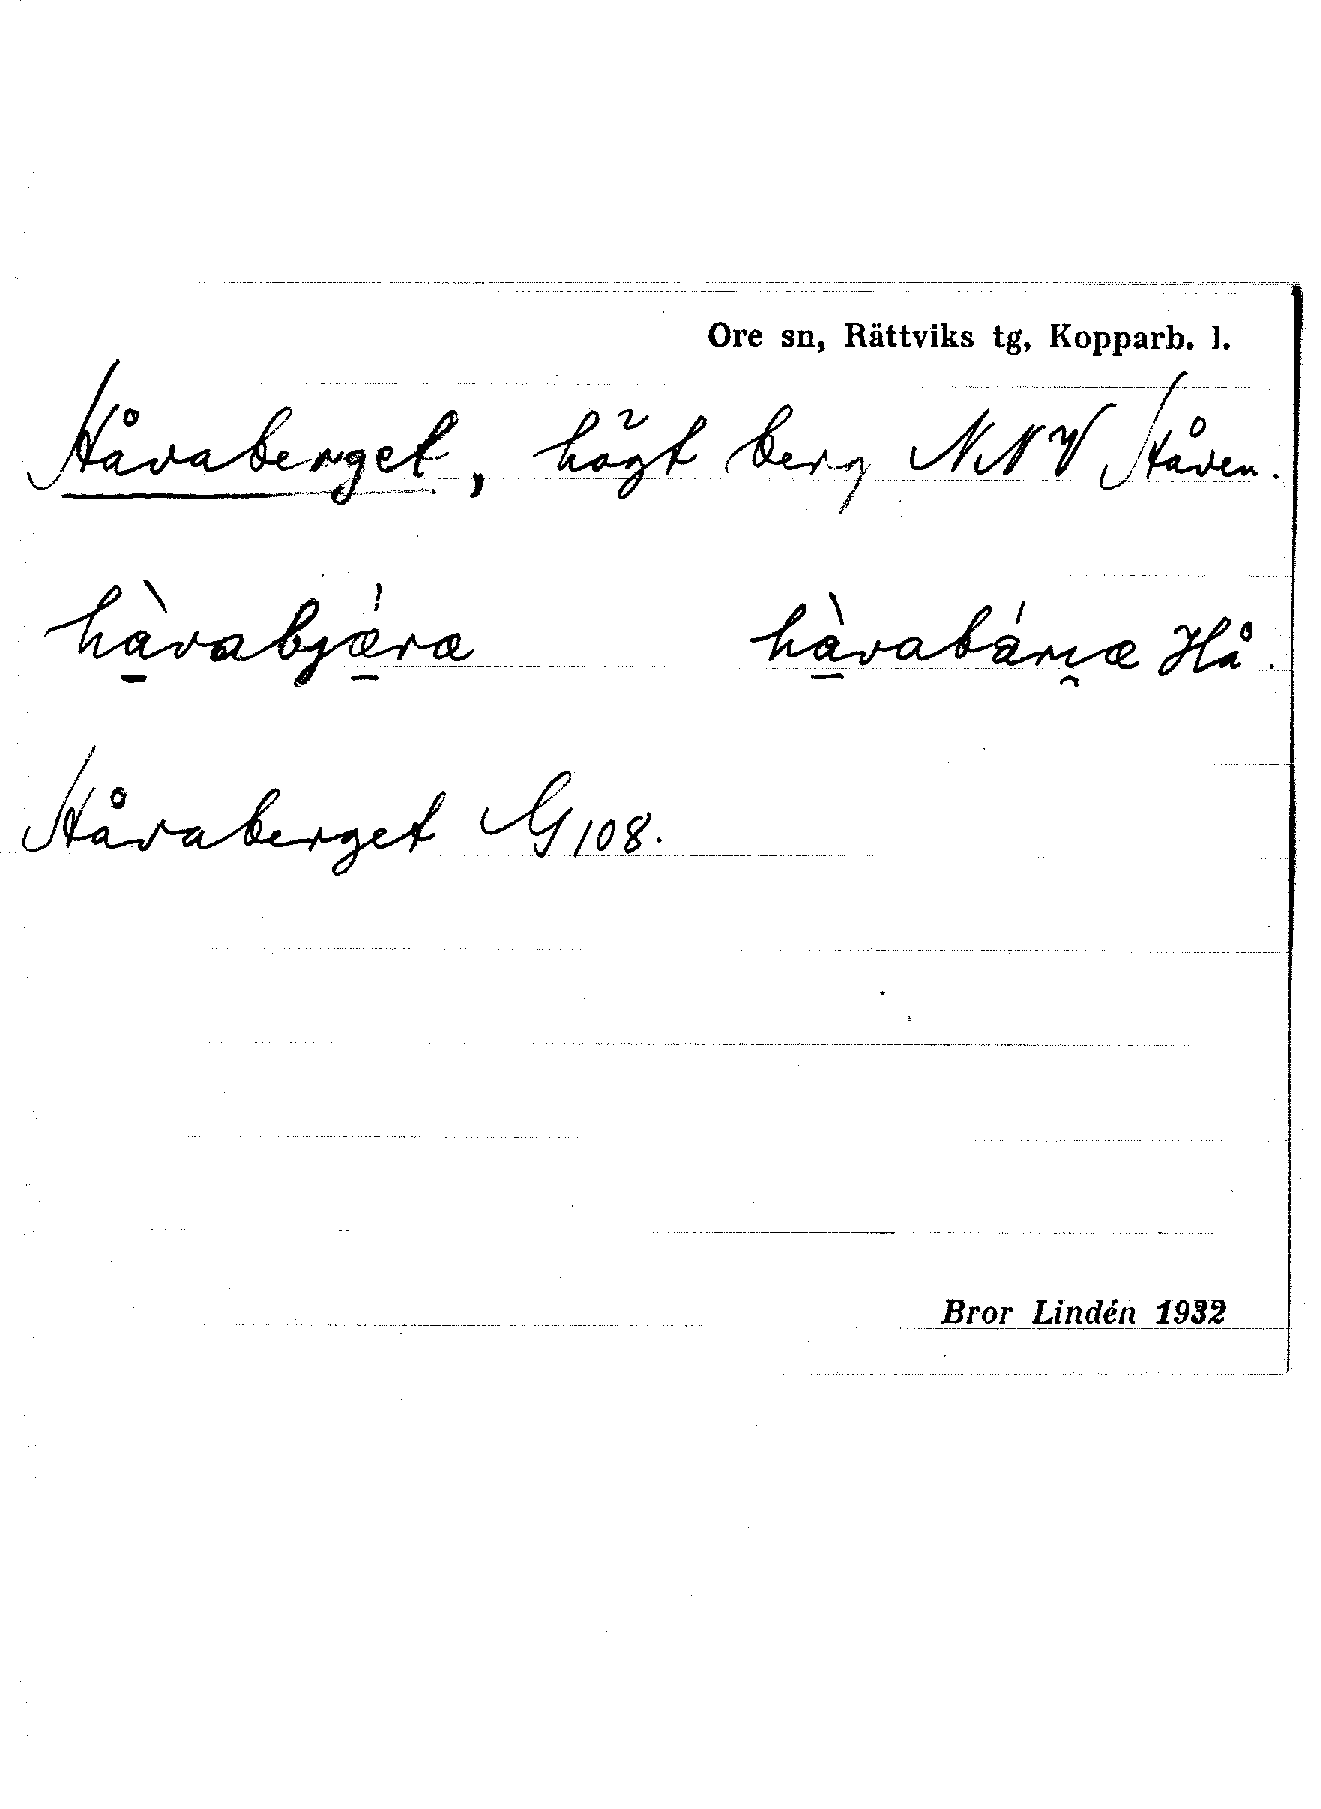 Ore sn, Rättviks tg, Kopparb. l.
Håvaberget, högt berg NNV Håven.
hàvabjǽra hàvabárı̯a Hå.
Håvaberget G 108.
Bror Lindén 1932